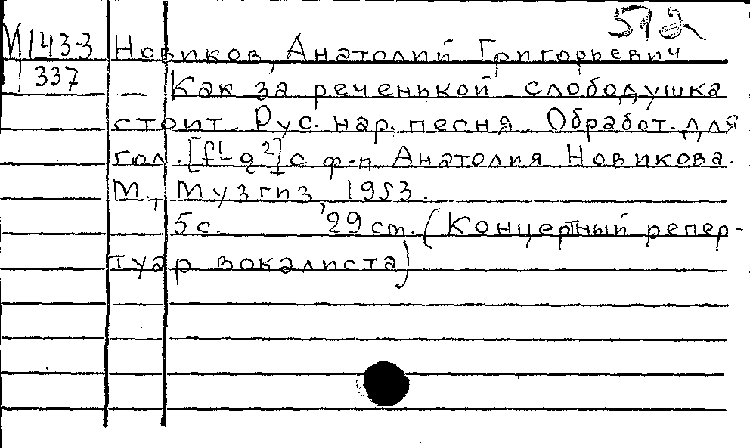 592
М 143-3 Новиков, Анатолий Григорьевич
337 — Как за реченькой слободушка
стоит. Рус. нар. песня. Обработ. для
гол. [f¹-g²] с ф-п. Анатолия Новикова.
М., Музгиз, 1953.
5 с. 29 см. (Концертный репер-
туар вокалиста)